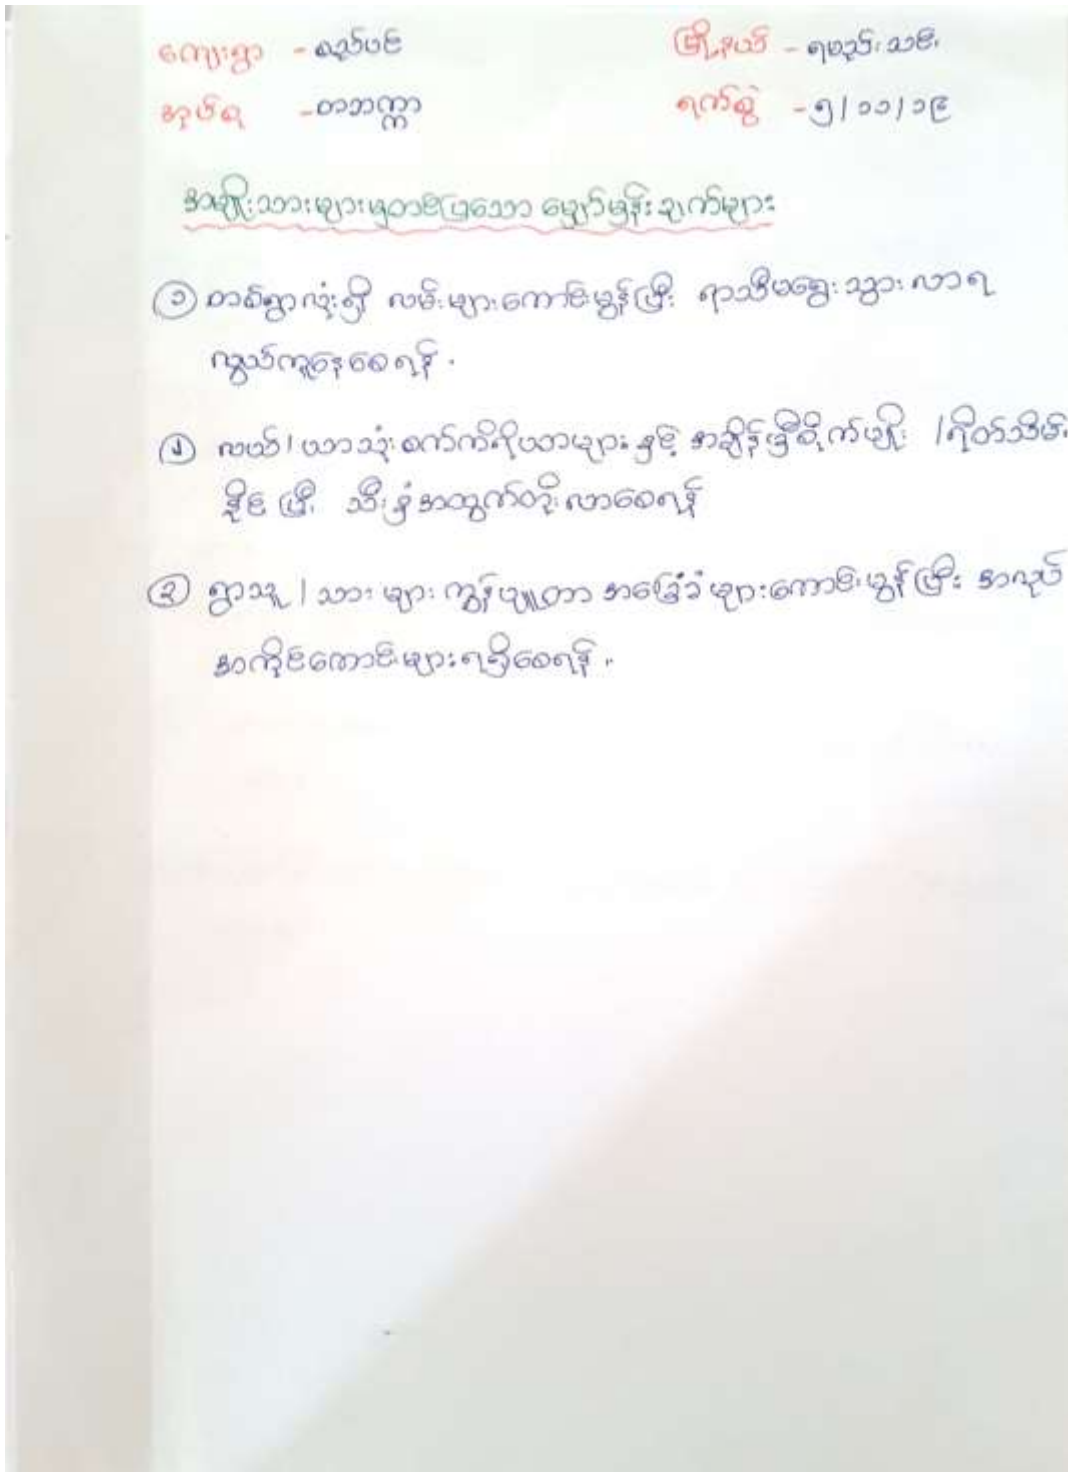 ကျေးရွာ - စည်ပင် မြို့နယ် - ရမည်းသင်း
အုပ်စု - တဘက္ကာ ရက်စွဲ - ၅/၁၁/၁၉
အမျိုးသားများမှတင်ပြသော မျှော်မှန်းချက်များ
၁ တစ်ရွာလုံးရှိ လမ်းများကောင်းမွန်ပြီး ရာသီမရွေး သွားလာရ
လွယ်ကူနေစေရန်.
၂ လယ်/ယာသုံးစက်ကိရိယာများနှင့် အချိန်မှီစိုက်ပျိုး /ရိတ်သိမ်း
နိုင်ပြီး သီးနှံအထွက်တိုးလာစေရန်
၃ ရွာသူ/သားများ ကွန်ပျူတာ အခြေခံများကောင်းမွန်ပြီး အလုပ်
အကိုင်ကောင်းများရရှိစေရန်.